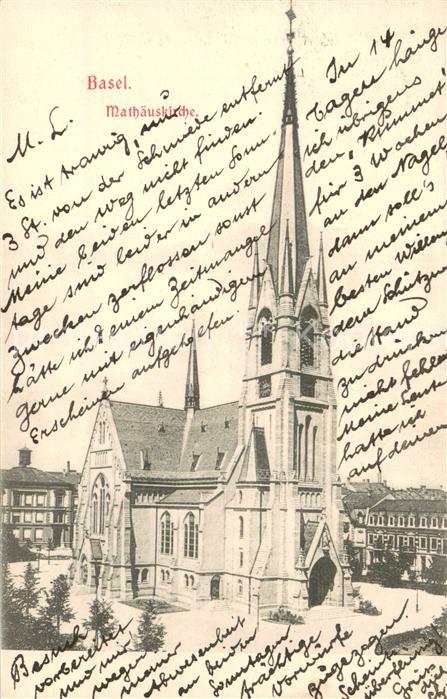 Basel.
Mathäuskirche.
M. L.
Es ist traurig, nur
3 St. von der Schmiede entfernt
und den Weg nicht finden.
Meine beiden letzten Sonn-
tage sind leider in andern
Zwecken zerflossen sonst
hätte ich deinem Zeitmangel
gerne mit eigenhändigen
Erscheinen aufgeholfen.
In 14
Tagen hänge
ich übrigens
den "Kummet"
für 3 Wochen
an den Nagel
dann soll's
an meinem
besten Willen
dem Schützen
die Hand
zu drücken
nicht fehlen
Meine Leute
hatte ich
auf deinen
Besuch
vorbereitet
und mir
wegen
meiner
Abwesenheit
an beiden
Sonntagen
trächtige
Vorwürfe
zugezogen